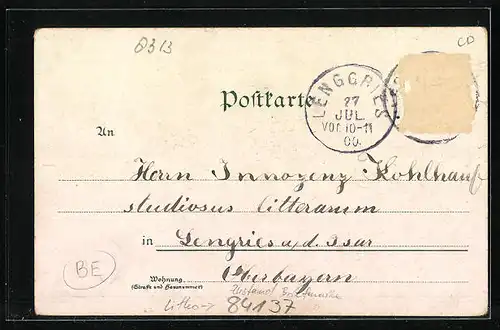 0313
CD
Postkarte
LENGGRIES
27
JUL.
VOR.10-11
00.
An
Herrn Innozenz Kohlhauf
studiosus litterarum
in Lengries a/d. Isar
Oberbayern
Wohnung
(Straße und Hausnummer)
BE
Litho→ 84137